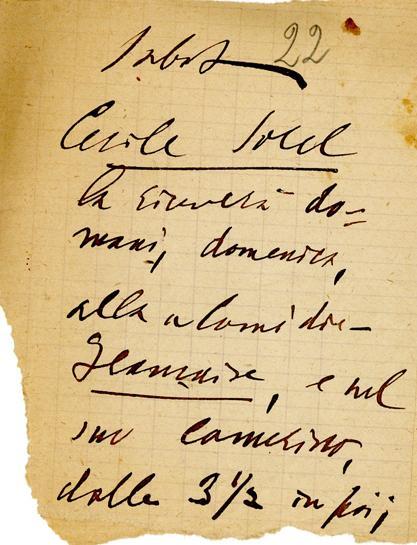 Sabat 22
Cecile Sorel
la riceverà do=
mani, domenica,
alla "Comédie-
Française, e nel
suo camerino,
dalle 3 1/2 in poi;